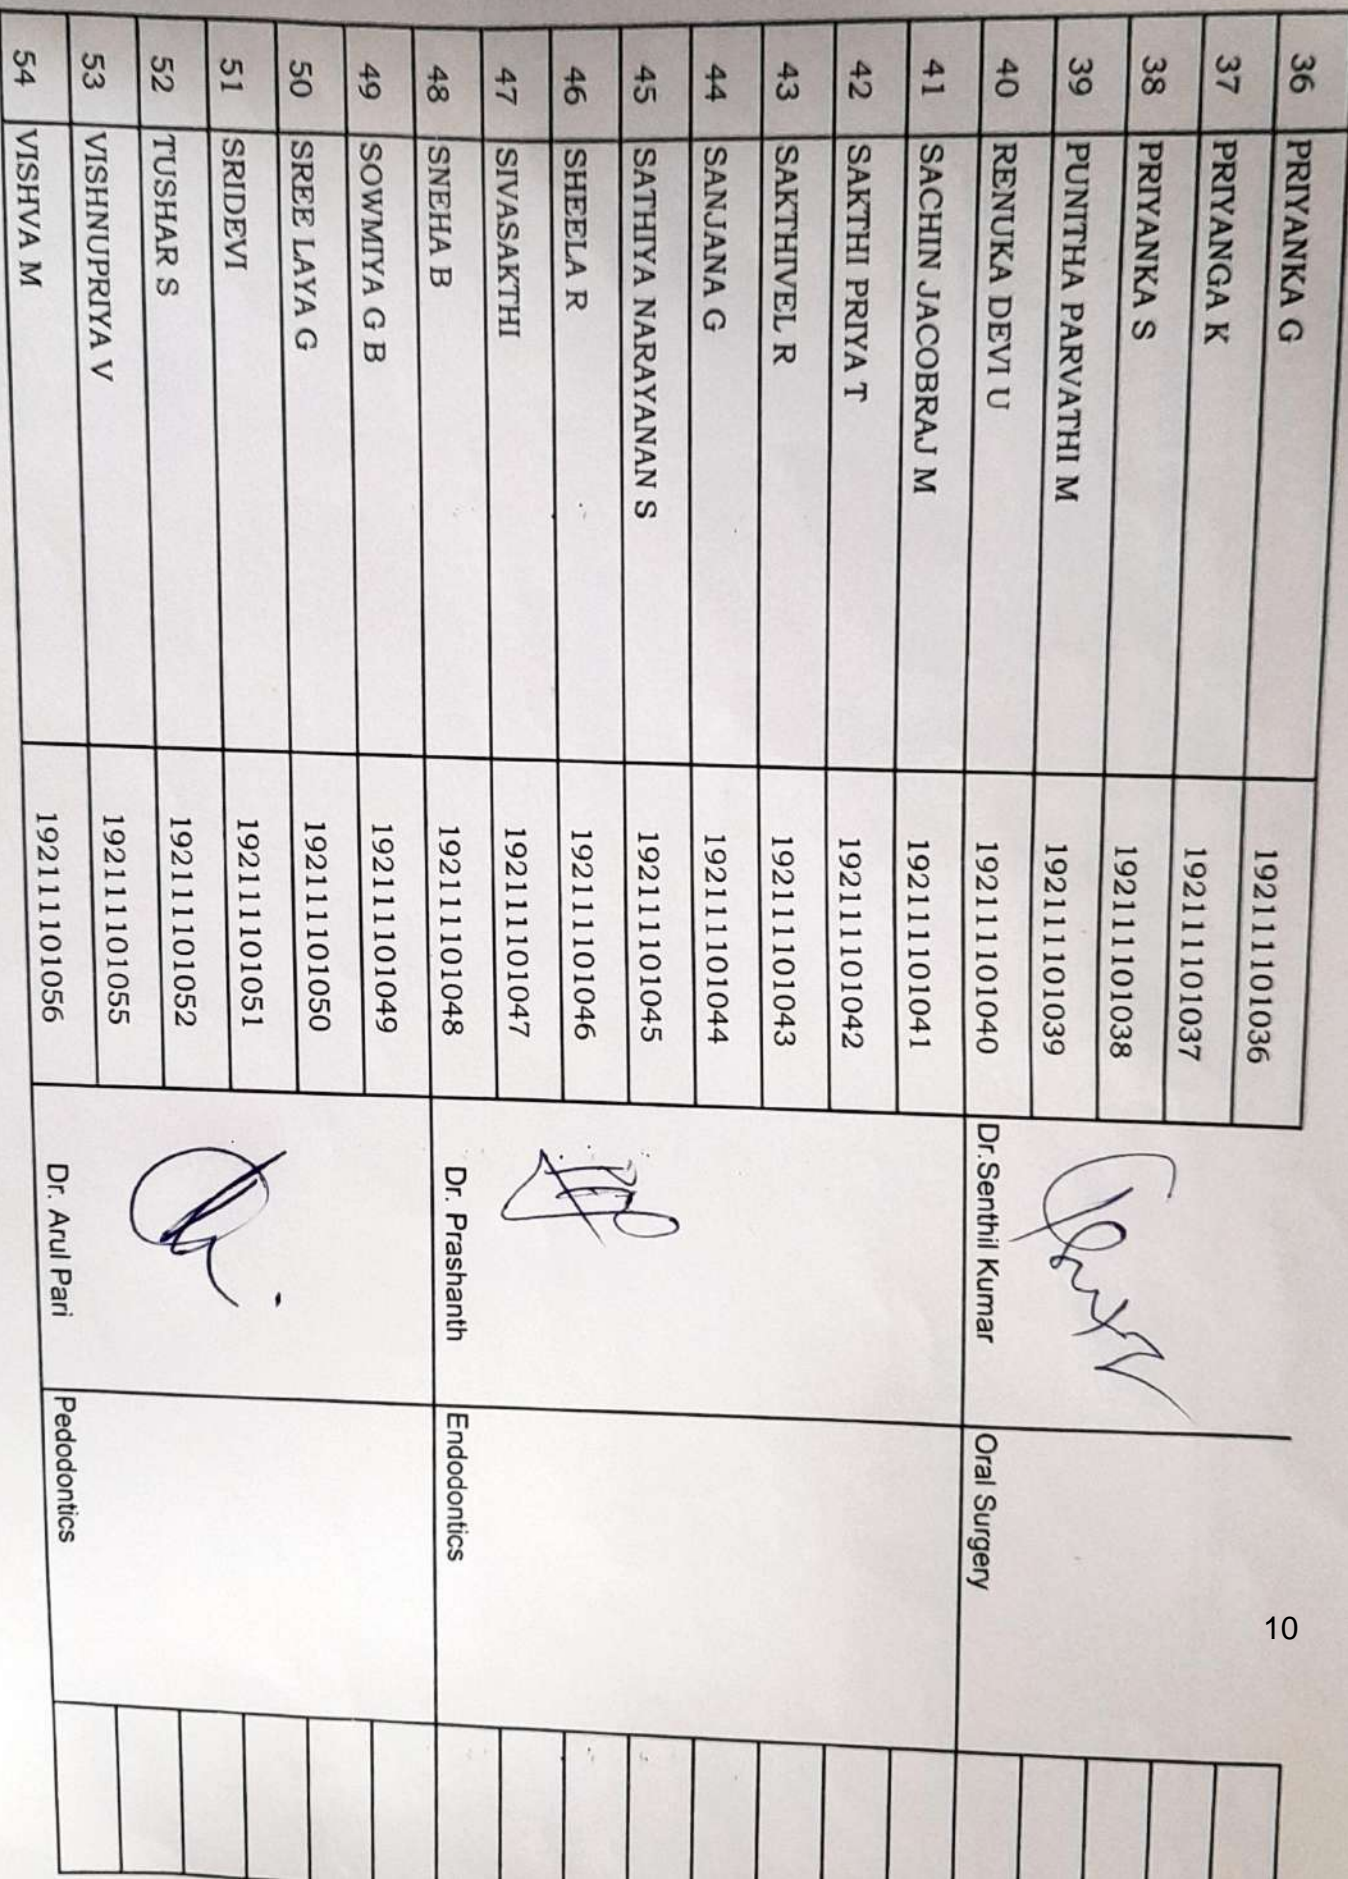 36 PRIYANKA G 192111101036
37 PRIYANGA K 192111101037
38 PRIYANKA S 192111101038
39 PUNITHA PARVATHI M 192111101039
40 RENUKA DEVI U 192111101040 Dr.Senthil Kumar Oral Surgery
41 SACHIN JACOBRAJ M 192111101041
42 SAKTHI PRIYA T 192111101042
43 SAKTHIVEL R 192111101043
44 SANJANA G 192111101044
45 SATHIYA NARAYANAN S 192111101045
46 SHEELA R 192111101046
47 SIVASAKTHI 192111101047
48 SNEHA B 192111101048 Dr. Prashanth Endodontics
49 SOWMIYA G B 192111101049
50 SREE LAYA G 192111101050
51 SRIDEVI 192111101051
52 TUSHAR S 192111101052
53 VISHNUPRIYA V 192111101055
54 VISHVA M 192111101056 Dr. Arul Pari Pedodontics
10